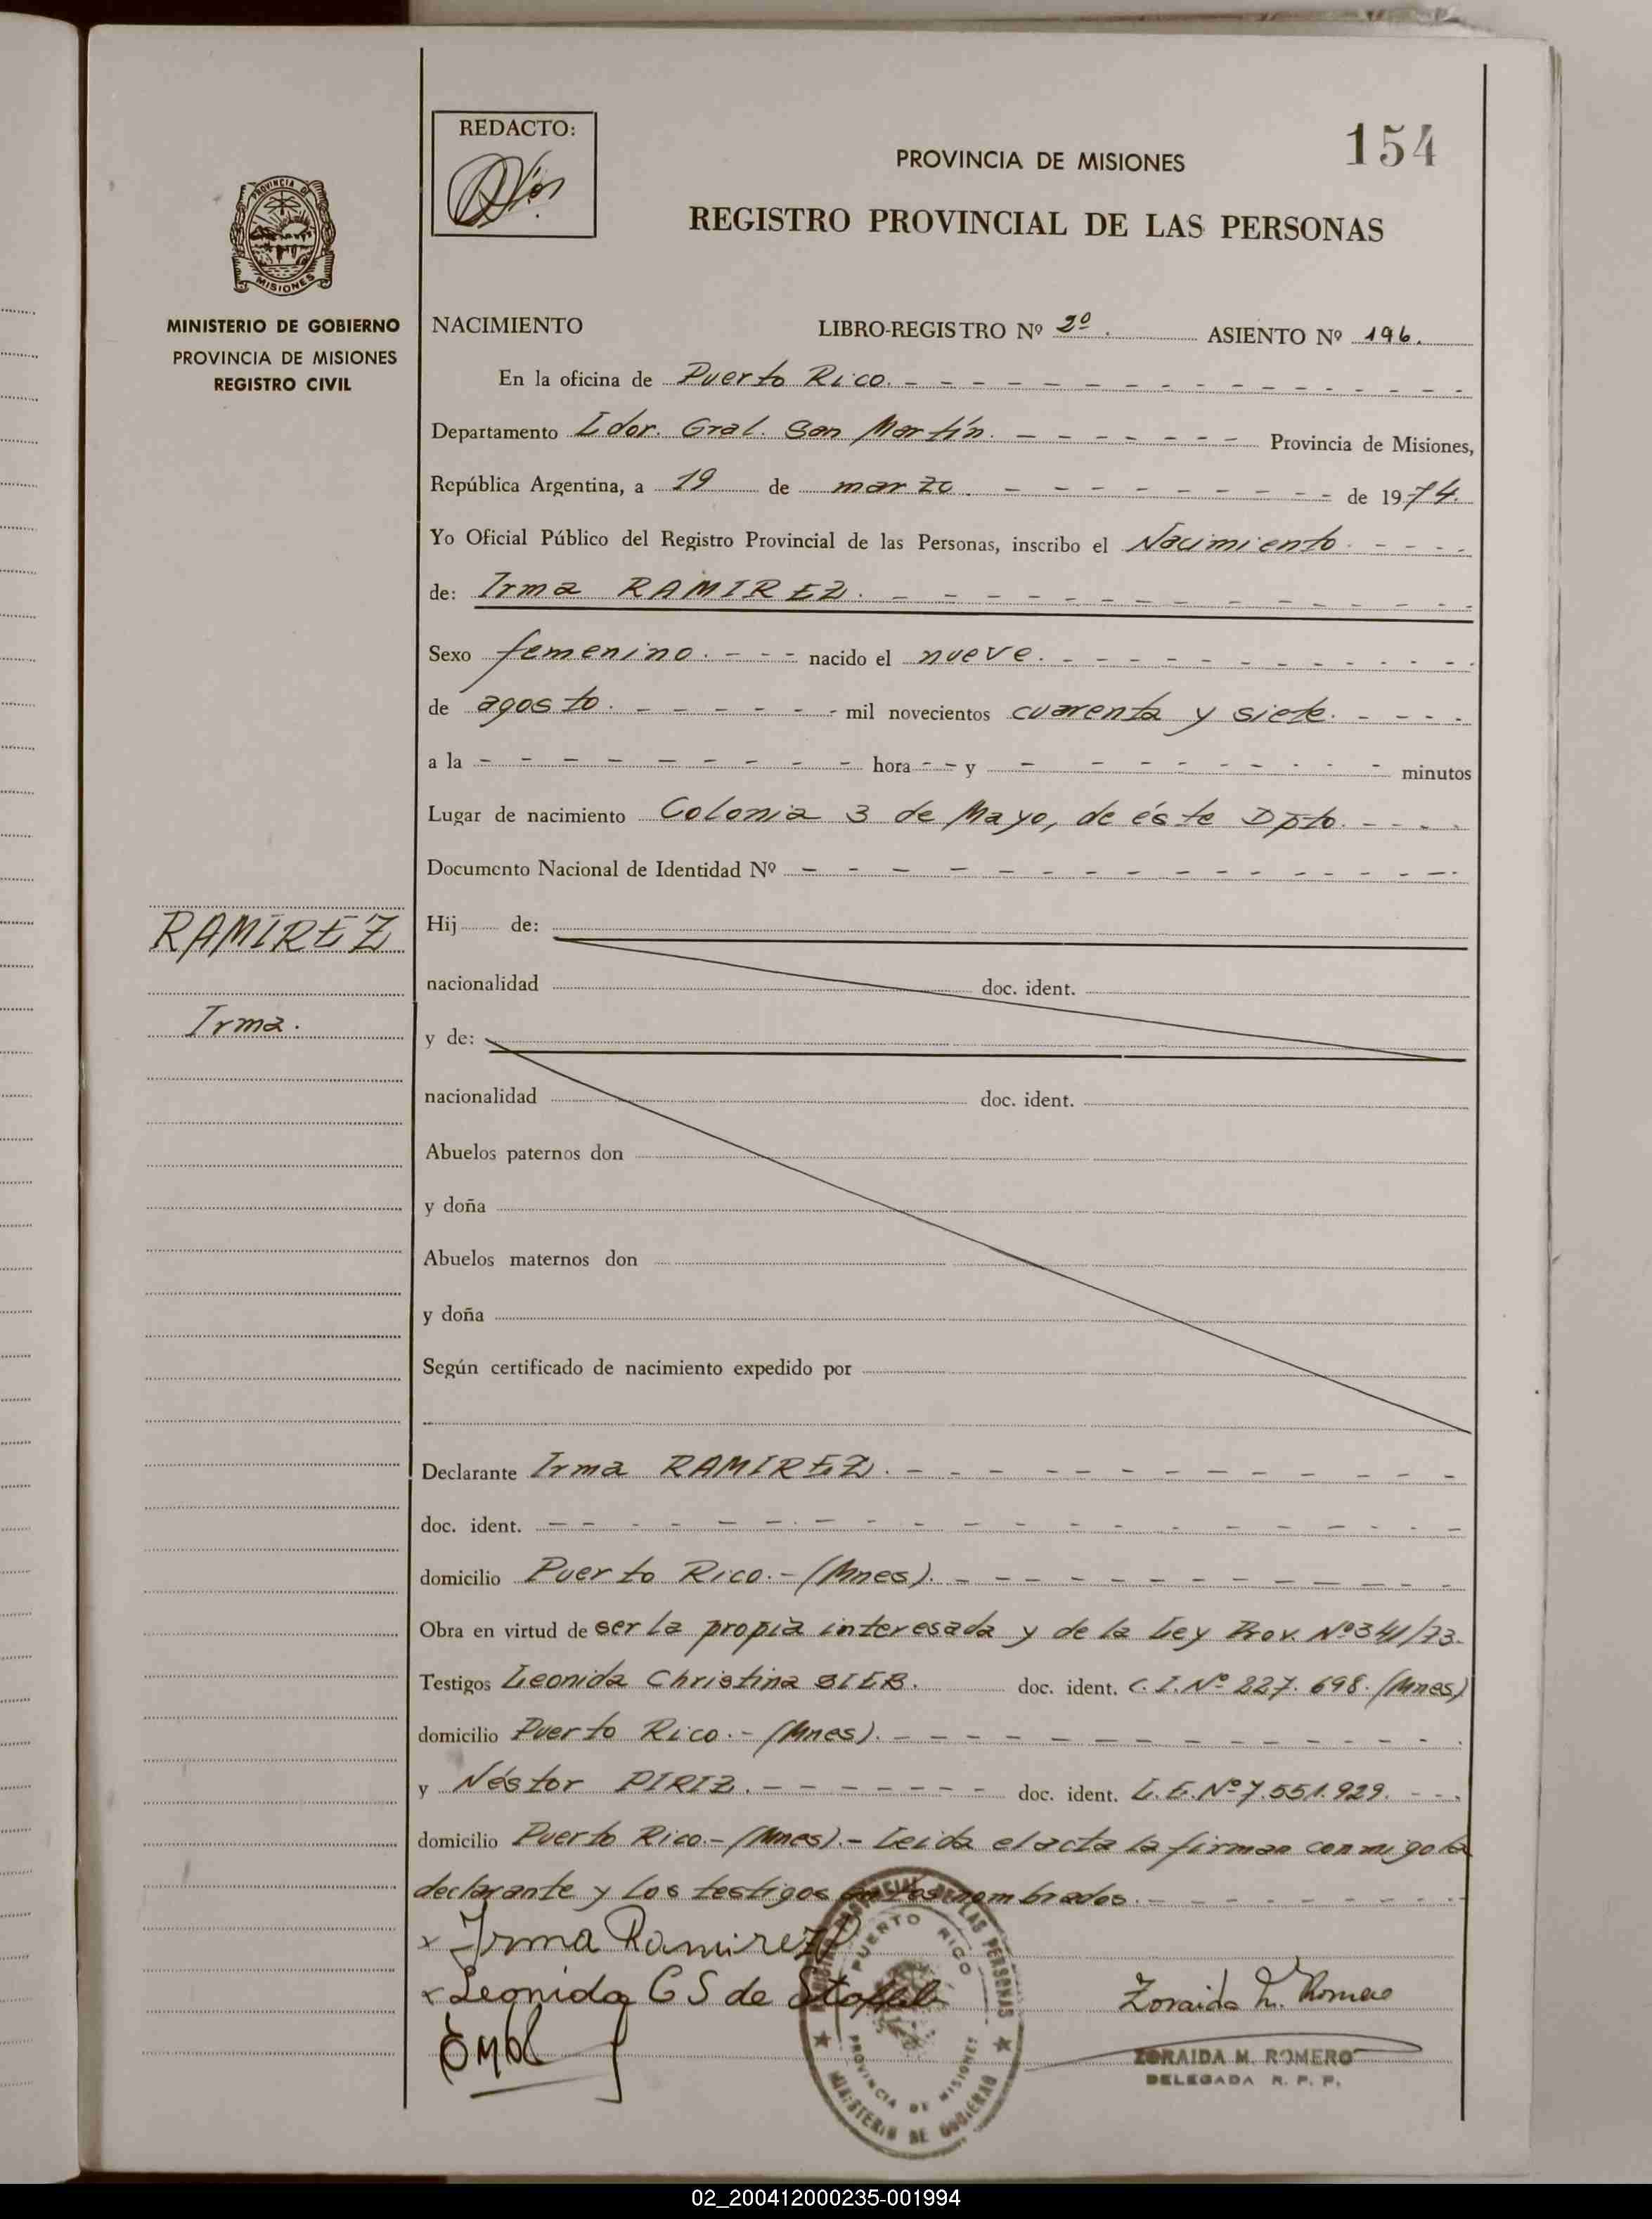 REDACTO:
154
PROVINCIA DE MISIONES
REGISTRO PROVINCIAL DE LAS PERSONAS
PROVINCIA DE
MISIONES
MINISTERIO DE GOBIERNO
PROVINCIA DE MISIONES
REGISTRO CIVIL
NACIMIENTO LIBRO-REGISTRO Nº 2º. ASIENTO Nº 196.
En la oficina de Puerto Rico.
Departamento Ldor. Gral. San Martín. Provincia de Misiones,
República Argentina, a 19 de marzo. de 1974.
Yo Oficial Público del Registro Provincial de las Personas, inscribo el Nacimiento
de: Irma RAMIREZ.
Sexo femenino. nacido el nueve.
de agosto. mil novecientos cuarenta y siete.
a la hora y minutos
Lugar de nacimiento Colonia 3 de Mayo, de éste Dpto.
Documento Nacional de Identidad Nº
RAMIREZ
Irma.
Hij de:
nacionalidad doc. ident.
y de:
nacionalidad doc. ident.
Abuelos paternos don
y doña
Abuelos maternos don
y doña
Según certificado de nacimiento expedido por
Declarante Irma RAMIREZ.
doc. ident.
domicilio Puerto Rico.-(Mnes).
Obra en virtud de ser la propia interesada y de la Ley Prov. Nº341/73.
Testigos Leonida Christina SIEB. doc. ident. C.I.Nº 227.698.(Mnes)
domicilio Puerto Rico.-(Mnes).
y Néstor PIRIZ. doc. ident. L.E.Nº7.551.929.
domicilio Puerto Rico.-(Mnes).- Leida el acta la firman conmigo la
declarante y los testigos nombrados.
x Irma Ramirez
x Leonida C S de
Zoraida M. Romero
ZORAIDA M. ROMERO
DELEGADA R. P. P.
REGISTRO PROVINCIAL DE LAS PERSONAS
PUERTO RICO
PROVINCIA DE MISIONES
MINISTERIO DE GOBIERNO
02_200412000235-001994